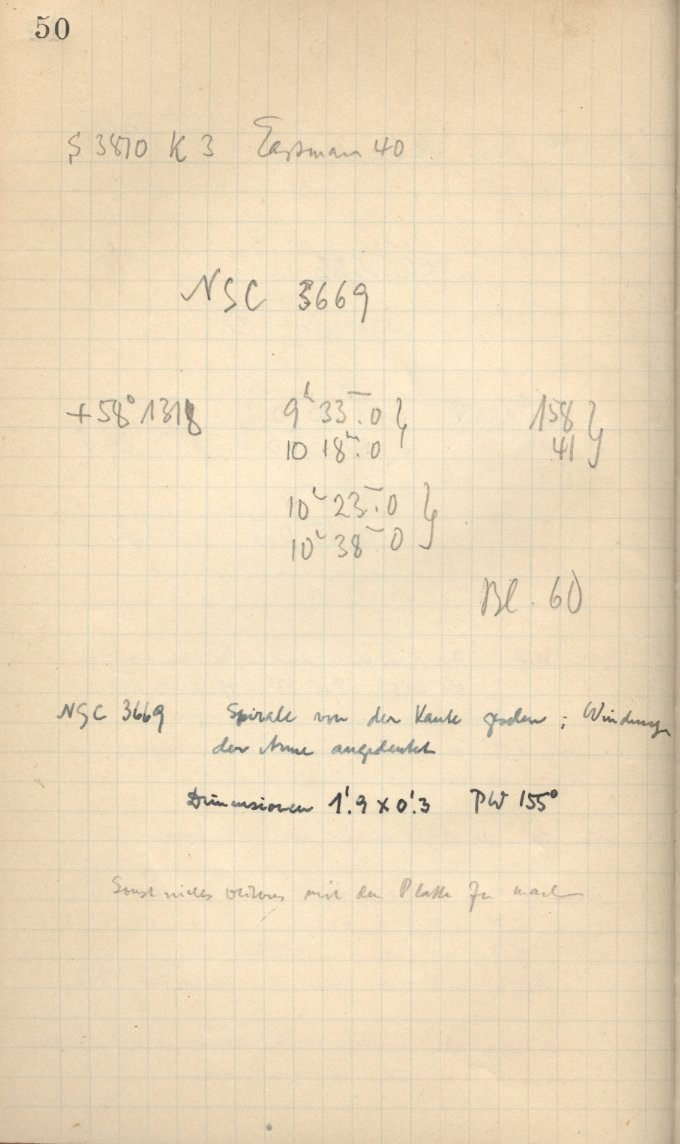 50
S 3870 K 3 Eastman 40
NGC 3669
+58° 1318 9h 33m.0 } 158 }
10 18m.0 41
10h 23m.0 }
10h 38m 0
Bl. 60
NGC 3669 Spirale von der Kante gesehen ; Windung
der Arme angedeutet
Dimensionen 1'.9 x 0'.3 PW 155°
Sonst nichts weiteres mit der Platte zu machen